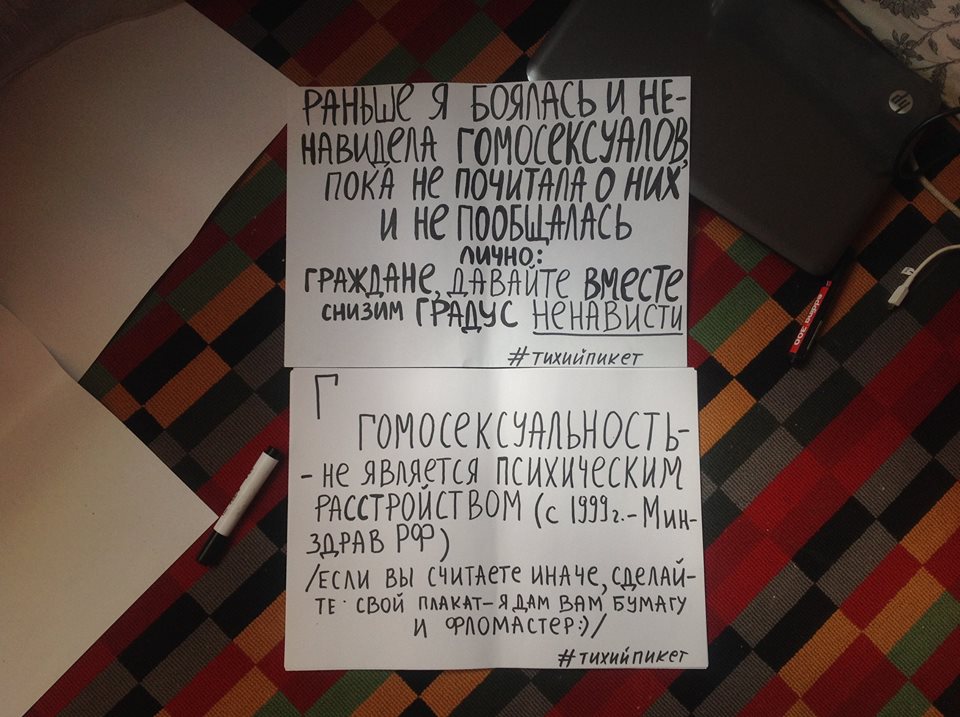 РАНЬШЕ Я БОЯЛАСЬ И НЕ-
НАВИДЕЛА ГОМОСЕКСУАЛОВ,
ПОКА НЕ ПОЧИТАЛА О НИХ
И НЕ ПООБЩАЛАСЬ
ЛИЧНО:
ГРАЖДАНЕ, ДАВАЙТЕ ВМЕСТЕ
СНИЗИМ ГРАДУС НЕНАВИСТИ
#ТИХИЙПИКЕТ
Г
ГОМОСЕКСУАЛЬНОСТЬ-
- НЕ ЯВЛЯЕТСЯ ПСИХИЧЕСКИМ
РАССТРОЙСТВОМ (С 1999г.- МИН-
ЗДРАВ РФ)
/ЕСЛИ ВЫ СЧИТАЕТЕ ИНАЧЕ, СДЕЛАЙ-
ТЕ СВОЙ ПЛАКАТ-Я ДАМ ВАМ БУМАГУ
И ФЛОМАСТЕР:)/
#ТИХИЙПИКЕТ
hp
edding 300